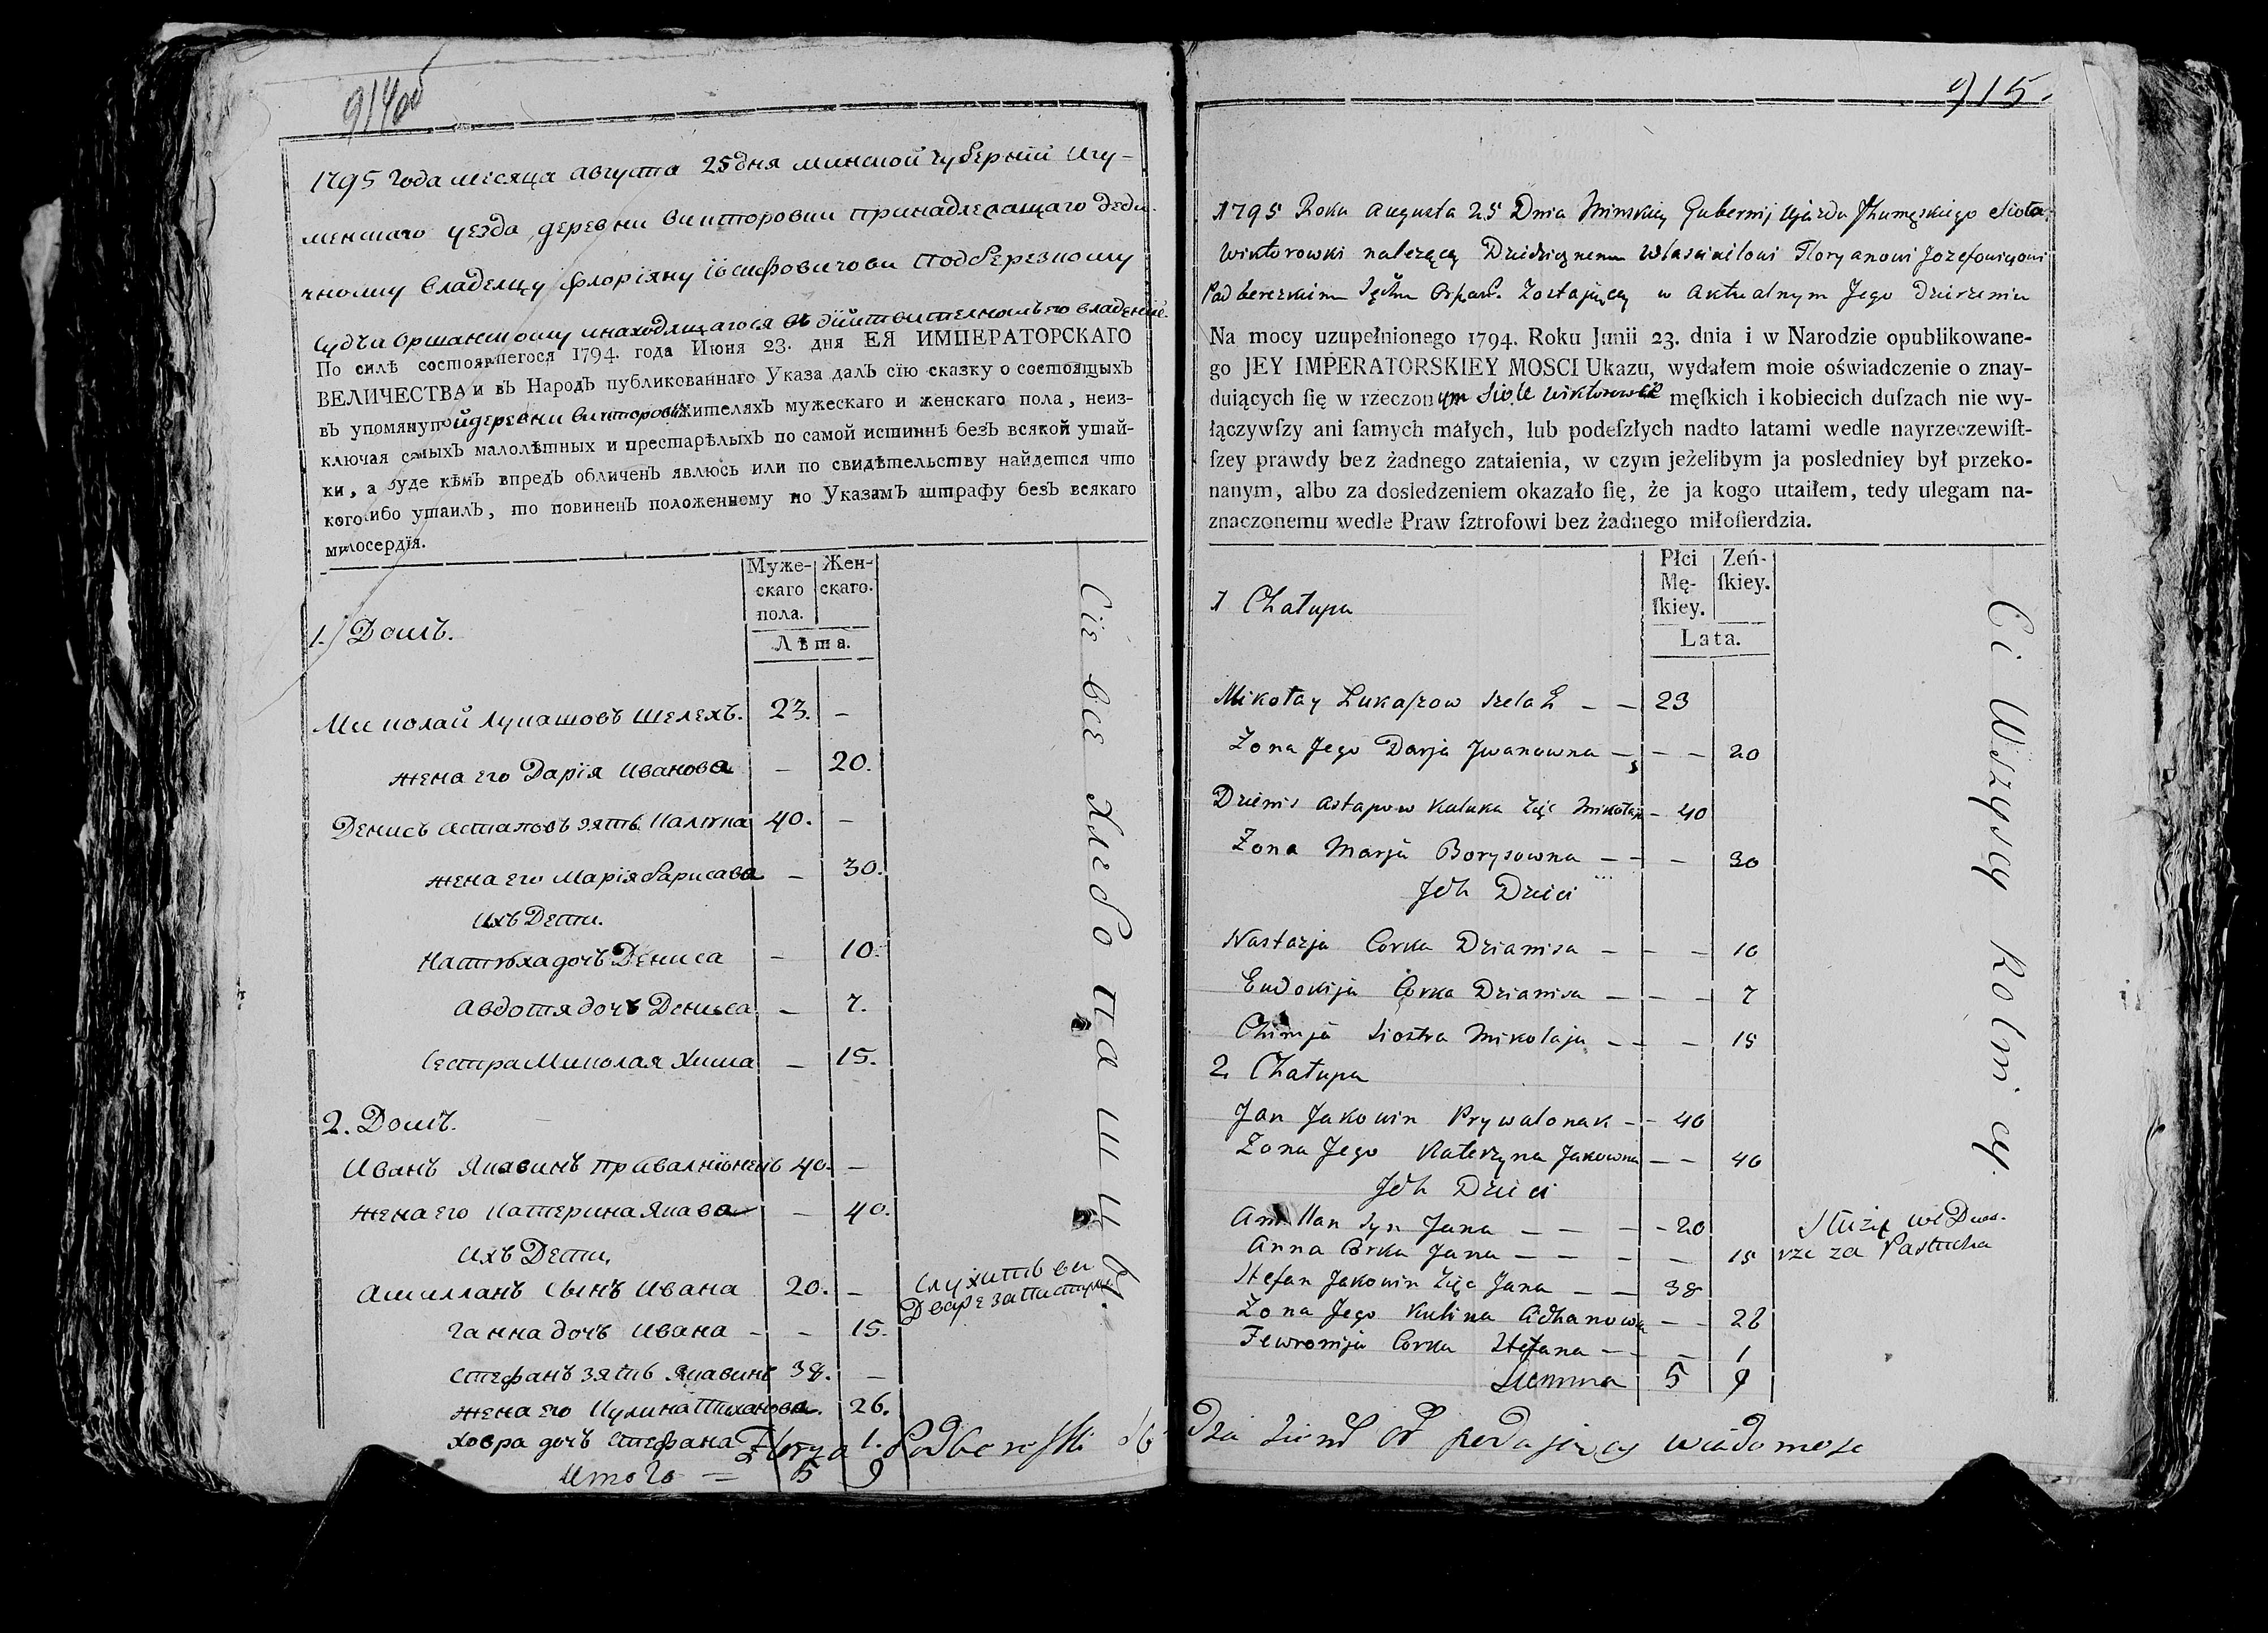 914об
1795 Года месяца августа 25 дня минской губерніи Игу-
менскаго уезда деревни Викторовки принадлежащаго деди-
чному владелцу Флоріяну Іосифовичови Подберезкому
судьи Оршанскому инаходящагося въ дійствителномъ его владеніе.
По силѣ состоявшегося 1794. года Июня 23. дня ЕЯ ИМПЕРАТОРСКАГО
ВЕЛИЧЕСТВА и въ Народъ публикованнаго Указа далъ сїю сказку о состоящыхъ
въ упомянутой деревни Викторовки жителяхъ мужескаго и женскаго пола, неиз-
ключая самыхъ малолѣтных и престарѣлыхъ по самой истиннѣ безъ всякой утай-
ки, а буде кѣмъ впредъ обличенъ явлюсь или по свидѣтельству найдется что
кого либо утаилъ, то повиненъ положенному по Указамъ штрафу безъ всякаго
милосердїя.
Муже- Жен-
скаго скаго.
пола.
Лѣта.
1. Домъ.
Миколай Лукашовъ Шелехъ. 23. –
жена его Дарія Иванова – 20.
Денисъ Астаповъ зять Калюка 40. –
жена его Марія Барисава – 30.
ихъ Дети.
Настюха дочъ Дениса – 10.
Авдотя дочъ Дениса – 7.
Сестра Миколая Хима – 15.
2. Домъ.
Иванъ Якавинъ Привалнїонекъ 40. –
жена его Катерина Якава – 40.
ихъ Дети.
Амилланъ сынъ Ивана 20. – служитъ ви
Дваре за пастуха.
Ганна дочъ Ивана – – 15.
Стефанъ зять Якавинъ 38. –
жена его Кулина Тиханова. 26.
Ховра дочъ Стефана 1.
Итого – 5 9
Сіе все хлебопашцы.
915.
1795 Roku Augusta 25 Dnia Minskiey Gubernij Ujazdu Jhumęskiego Siola
Wiktorowki należącey Dziedzicznemu Wlascicilowi Floryanowi Jozefowiczowi
Padberezkim Sędźm Orszań. Zostającey w Aktualnym Jego Dzierżeniu
Na mocy uzupełnionego 1794. Roku Junii 23. dnia i w Narodzie opublikowane-
go JEY IMPERATORSKIEY MOSCI Ukazu, wydałem moie oświadczenie o znay-
duiących ſię w rzeczonym Siole Wiktorowce męſkich i kobiecich duſzach nie wy-
łączywſzy ani ſamych małych, lub podeſzłych nadto latami wedle nayrzeczewiſt-
ſzey prawdy bez żadnego zataienia, w czym jeżelibym ja posledniey był przeko-
nanym, albo za dosledzeniem okazało ſię, że ja kogo utaiłem, tedy ulegam na-
znaczonemu wedle Praw ſztrofowi bez żadnego miłoſierdzia.
Płci Zeń-
Mę- ſkiey.
ſkiey.
Lata.
1 Chałupa
Mikołay Lukaszow Szelech – – 23
Zona Jego Darja Jwanowna – – – 20
Dzienis Astapow Kaluka Zięć Mikołaja – 40
Zona Marja Borysowna – – – 30
Jch Dzieci
Nastazja Corka Dzianisa – – – 10
Eudokija Corka Dzianisa – – – 7
Chimja Siostra Mikolaja – – – 15
2 Chałupa
Jan Jakowin Prywalonak – – 40
Zona Jego Katerzyna Jakowna – – 40
Jch Dzieci
Amillan Syn Jana – – – – 20 Służy we Dwo-
Anna Corka Jana – – – – 15 rze za Pastucha
Stefan Jakowin Zięc Jana – – 38
Zona Jego Kulina Cichanowna – – 26
Fewronija Corka Stefana – – – 1
Summa 5 9
Ci Wszyscy Rolnicy.
Florya Podbereski
podający wiadomosc